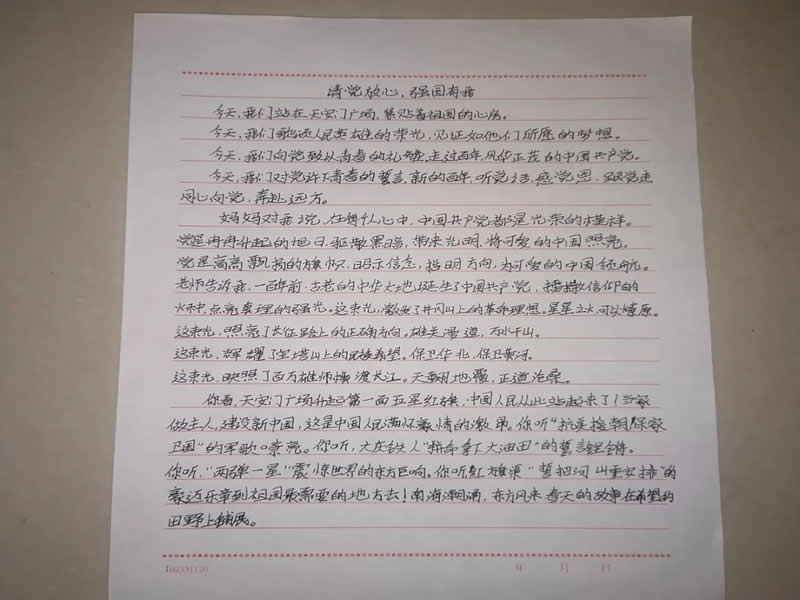 请党放心、强国有我
今天,我们站在天安门广场,紧贴着祖国的心房。
今天,我们歌颂人民英雄的荣光,见证如他们所愿的梦想。
今天,我们向党致以青春的礼赞,走过百年,风华正茂的中国共产党。
今天,我们对党许下青春的誓言,新的百年,听党话,感党恩,跟党走
同心向党,奔赴远方。
妈妈对我说,在每个人心中,中国共产党都是光荣的模样。
党是冉冉升起的旭日,驱散黑暗,带来光明,将可爱的中国照亮。
党是高高飘扬的旗帜,昭示信念,指明方向,为可爱的中国领航。
老师告诉我,一百年前,古老的中华大地诞生了中国共产党,播撒信仰的
火种,点亮真理的强光。这束光,激发了井冈山上的革命理想。星星之火,可以燎原。
这束光,照亮了长征路上的正确方向。雄关漫道,万水千山。
这束光,辉耀了宝塔山上的民族希望。保卫华北,保卫黄河。
这束光,映照了百万雄师横渡大江。天翻地覆,正道沧桑。
你看,天安门广场升起第一面五星红旗,中国人民从此站起来了!当家
做主人,建设新中国,这是中国人民满怀豪情的激昂。你听"抗美援朝,保家
卫国"的军歌嘹亮。你听,大庆铁人"拼命拿下大油田"的誓言铿锵。
你听,"两弹一星"震惊世界的东方巨响。你听红旗渠"誓把河山重安排"的
豪迈乐章到祖国最需要的地方去!南海潮涌,东方风来,春天的故事在希望的
田野上铺展。
年 月 日